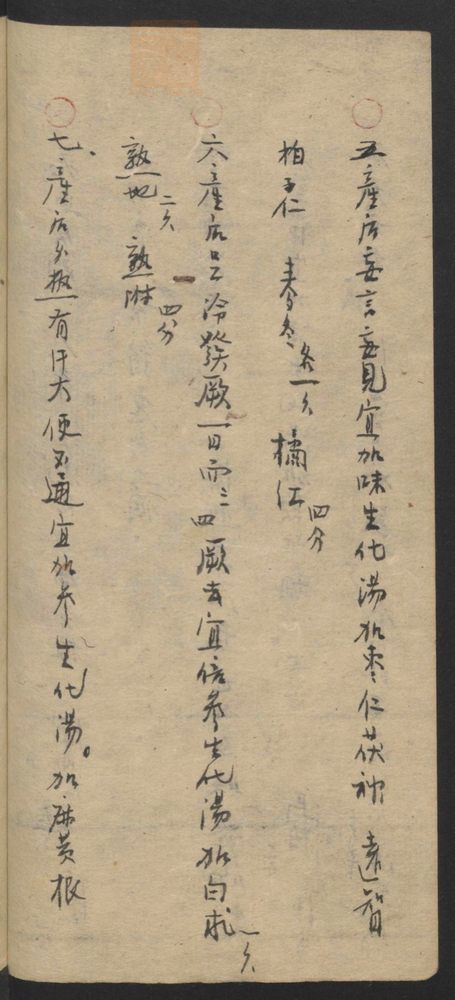 五產后妄言妄見宜加味生化湯加棗仁茯神 遠智
柏子仁 麥冬各一錢 橘红四分
六、產后口冷發厥一日而三四厥者宜倍參生化湯加白朮一錢
熟地二錢 熟附四分
七、產后分热有汗大便不通宜加参生化湯。加麻黄根